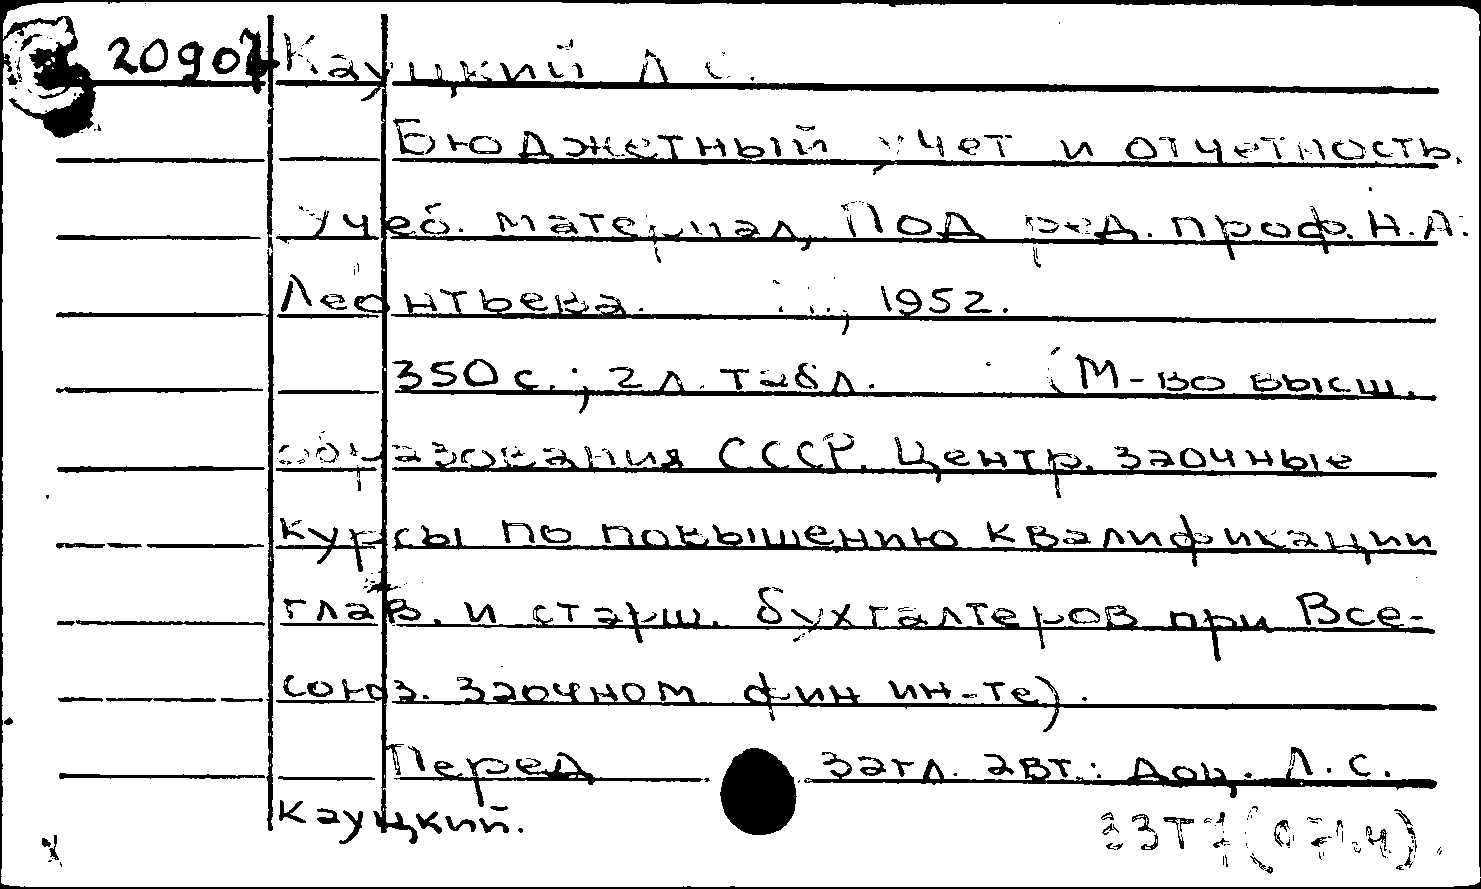 20907 Кауцкий Л С.
Бюджетный учет и отчетность.
Учеб. материал, Под ред. проф. Н.А.
Леонтьева. 1952.
350 с.; 2 л. табл. (М-во высш.
образования СССР. Центр. заочные
курсы по повышению квалификации
глав. и старш. бухгалтеров при Все-
союз. заочном фин ин-те).
Перед загл. авт.: доц. Л.С.
Кауцкий.
33Т7(07).